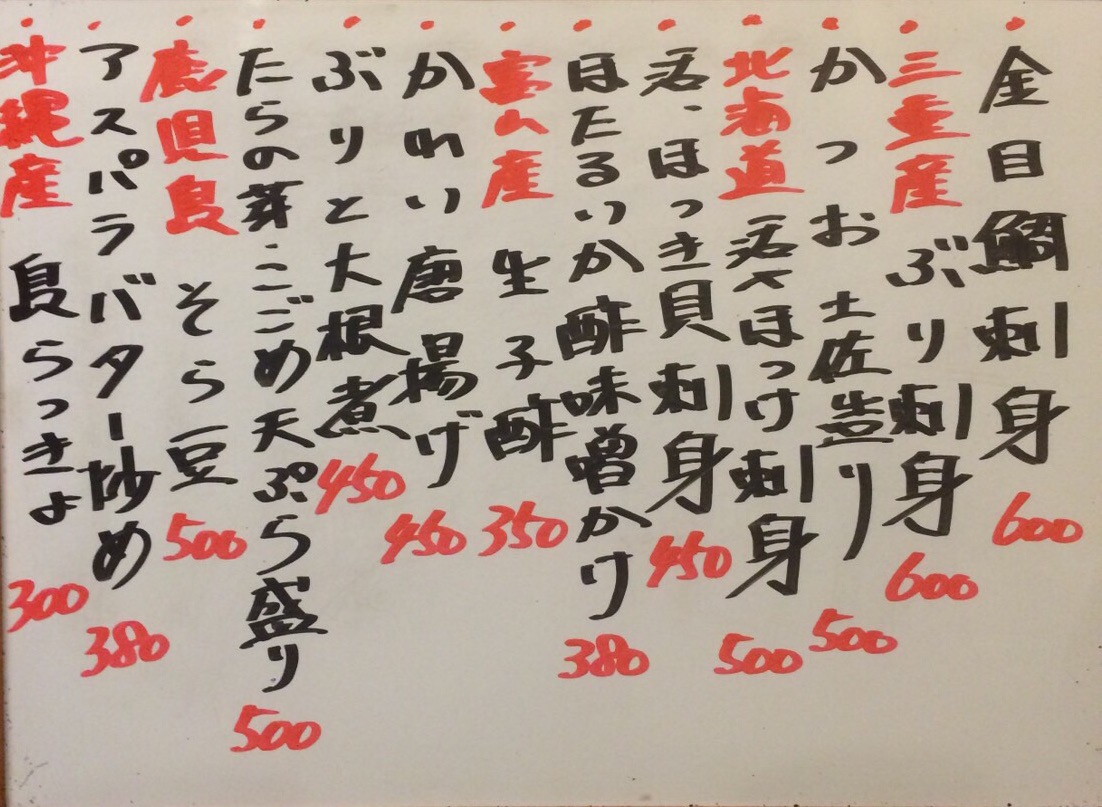 ・金目鯛刺身 600
・三重産 ぶり刺身 600
・かつお土佐造り 500
・北海道 活〆ほっけ刺身 500
・活、ほっき貝刺身 450
・ほたるいか酢味噌かけ 380
・富山産 生子酢 350
・かれい唐揚げ 450
・ぶりと大根煮 450
・たらの芽こごめ天ぷら盛り 500
・鹿児島 そら豆 500
・アスパラバター炒め 380
・沖縄産 島らっきょ 300